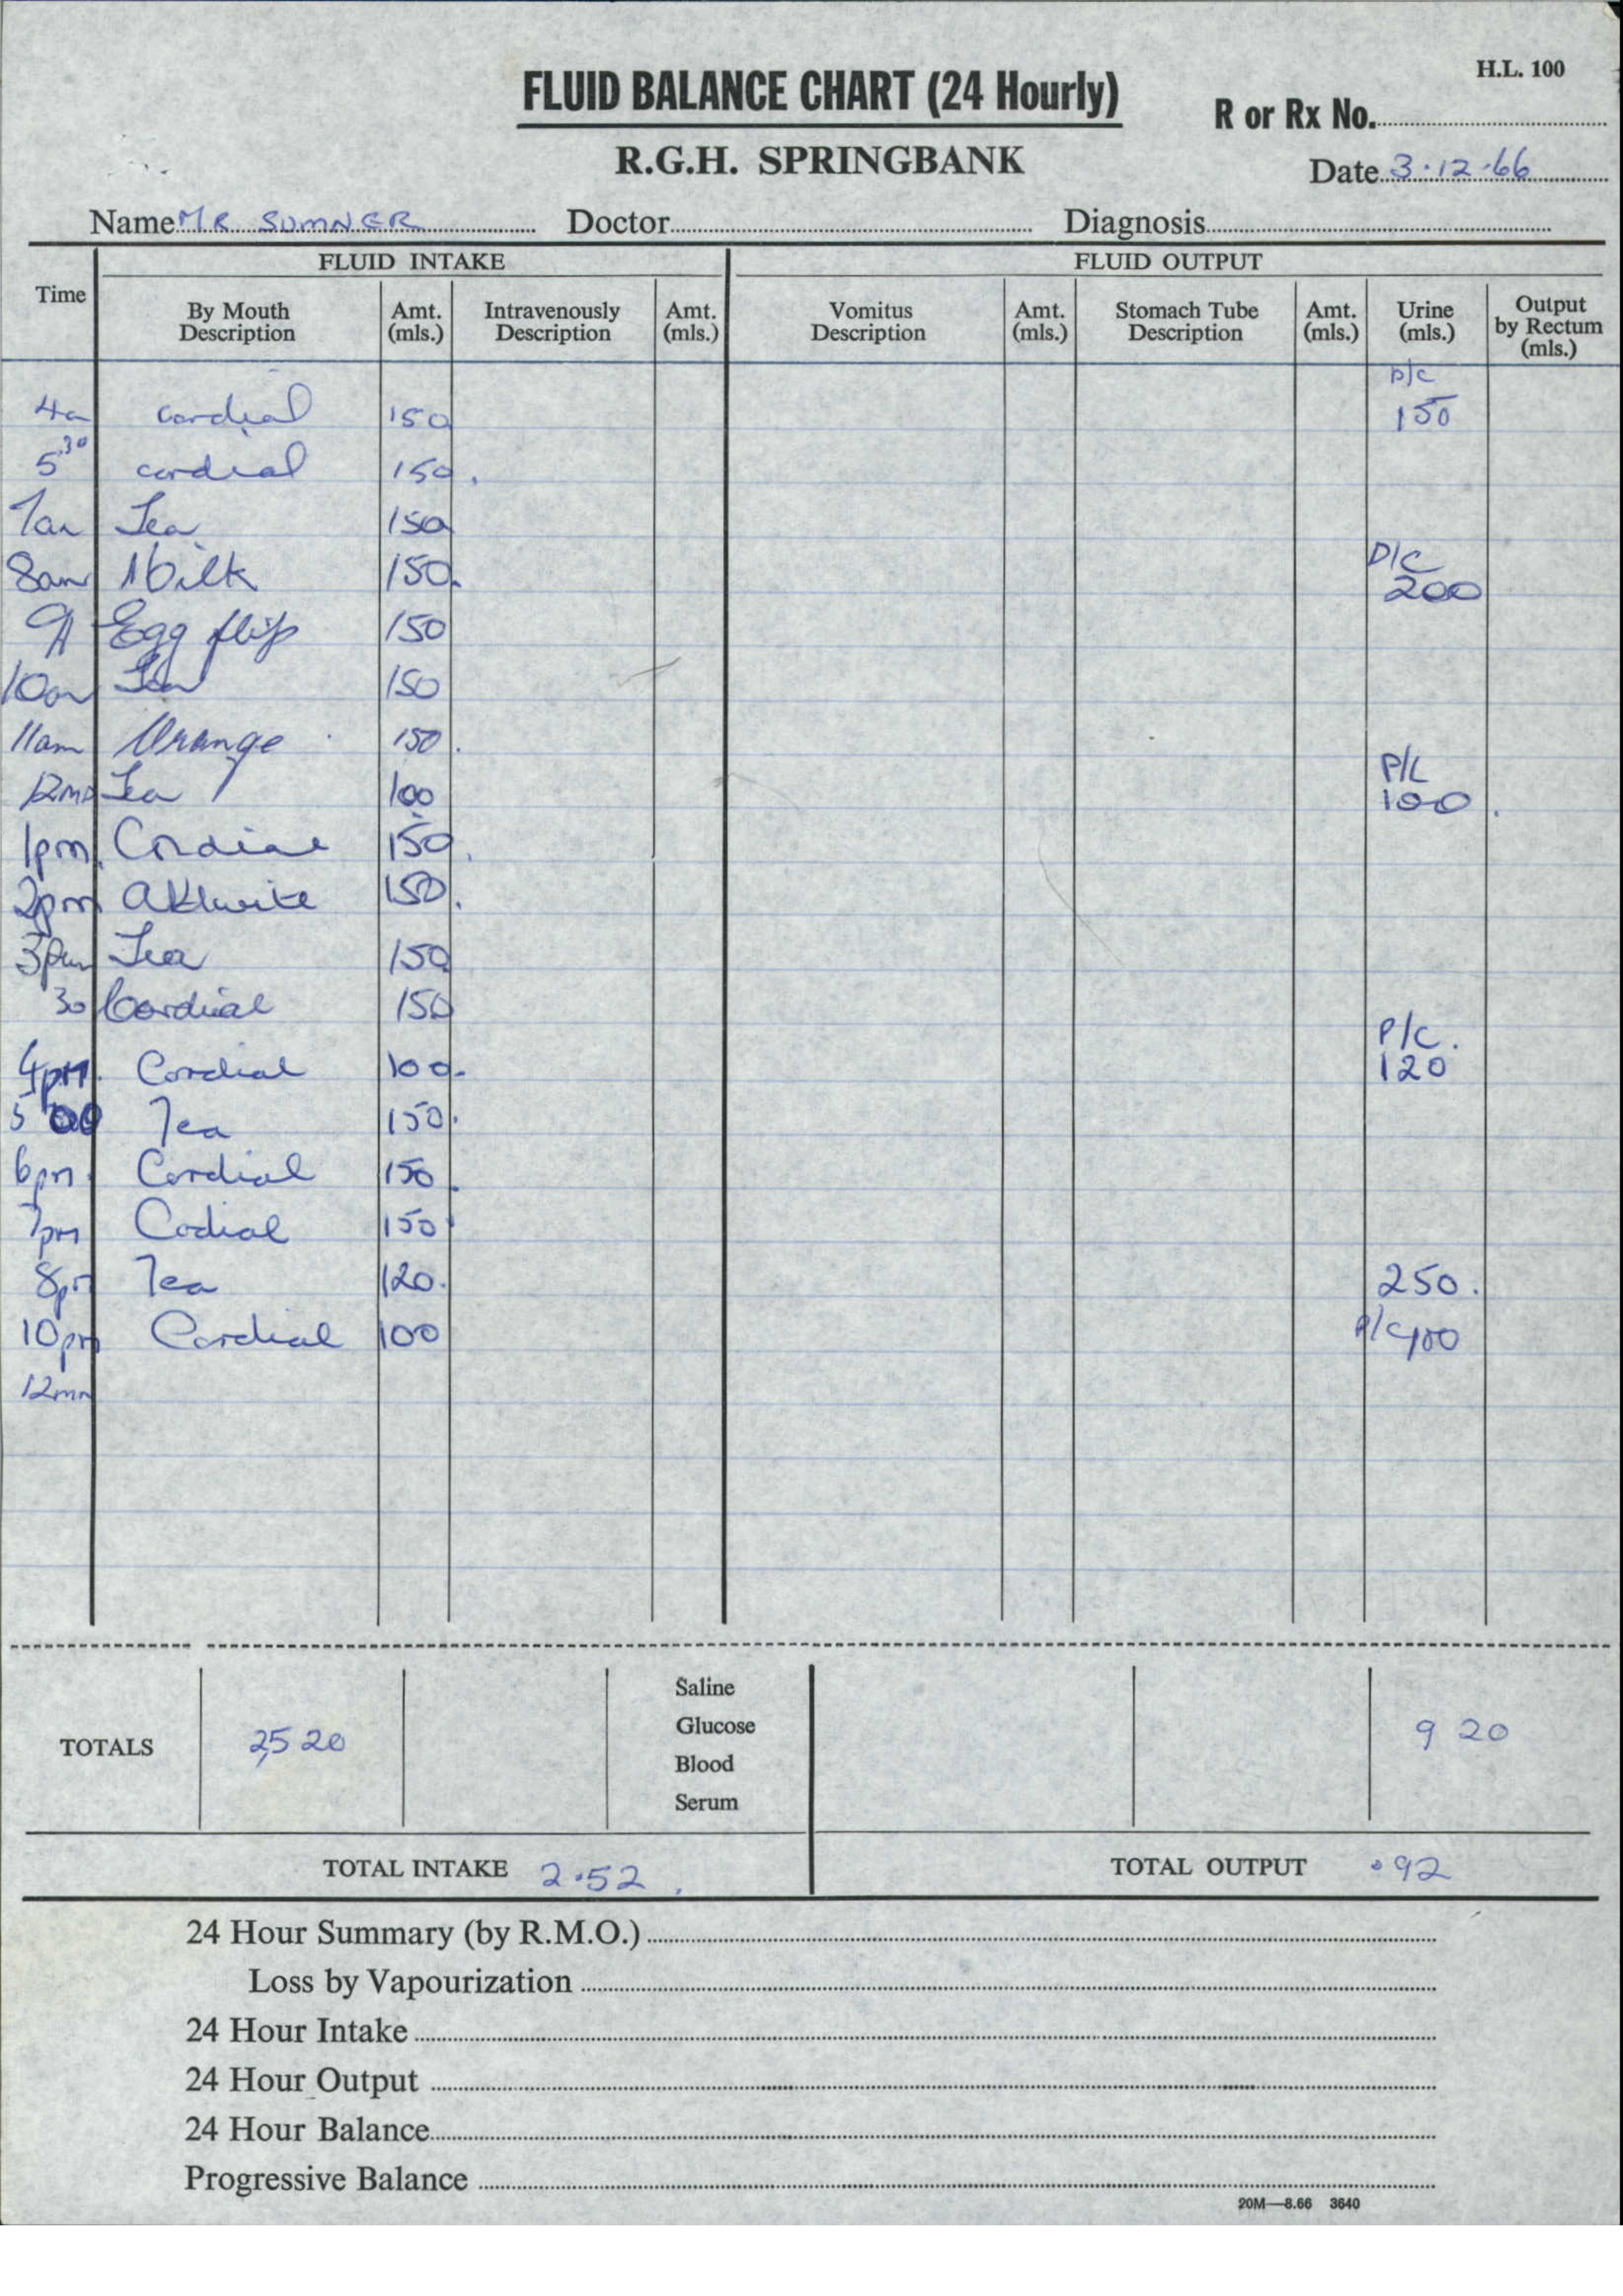 H.L. 100
FLUID BALANCE CHART (24 Hourly)
R or Rx No.
R.G.H. SPRINGBANK
Date 3.12.66
Name MR SUMNER Doctor Diagnosis
FLUID INTAKE FLUID OUTPUT
Time By Mouth Description Amt. (mls.) Intravenously Description Amt. (mls.) Vomitus Description Amt. (mls.) Stomach Tube Description Amt. (mls.) Urine (mls.) Output by Rectum (mls.)
P/C
4a cordial 150 150
5 30 cordial 150.
7am Tea 150
P/C
8am Milk 150. 200
9A Egg flip 150
10am Tea 150
11am Orange 150.
P/C
12MD Tea 100 100.
1pm. Cordial 150.
2pm 150.
3pm Tea 150
30 Cordial 150
P/C.
4pm. Cordial 100. 120
5 00 Tea 150.
6pm. Cordial 150.
7pm Codial 150
8pm Tea 120. 250.
10pm Cordial 100 P/C 100
12mn
Saline
Glucose
TOTALS 2520 920
Blood
Serum
TOTAL INTAKE 2.52. TOTAL OUTPUT .92
24 Hour Summary (by R.M.O.)
Loss by Vapourization
24 Hour Intake
24 Hour Output
24 Hour Balance
Progressive Balance
20M—8.66 3640